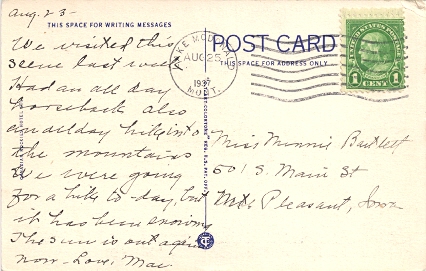 Aug. 23-
THIS SPACE FOR WRITING MESSAGES
We visited this
scene last week
Had an all day
horseback also
an all day hike into
the mountains
We were going
for a hike to-day, but
it has been snowing
The sun is out again
now - Love, Mae.
LAKE McDONALD
AUG 25
1937
MONT.
POST CARD
THIS SPACE FOR ADDRESS ONLY
UNITED STATES POSTAGE
1 CENT 1
Miss Minnie Bartlett
501 S. Main St
Mt. Pleasant, Iowa